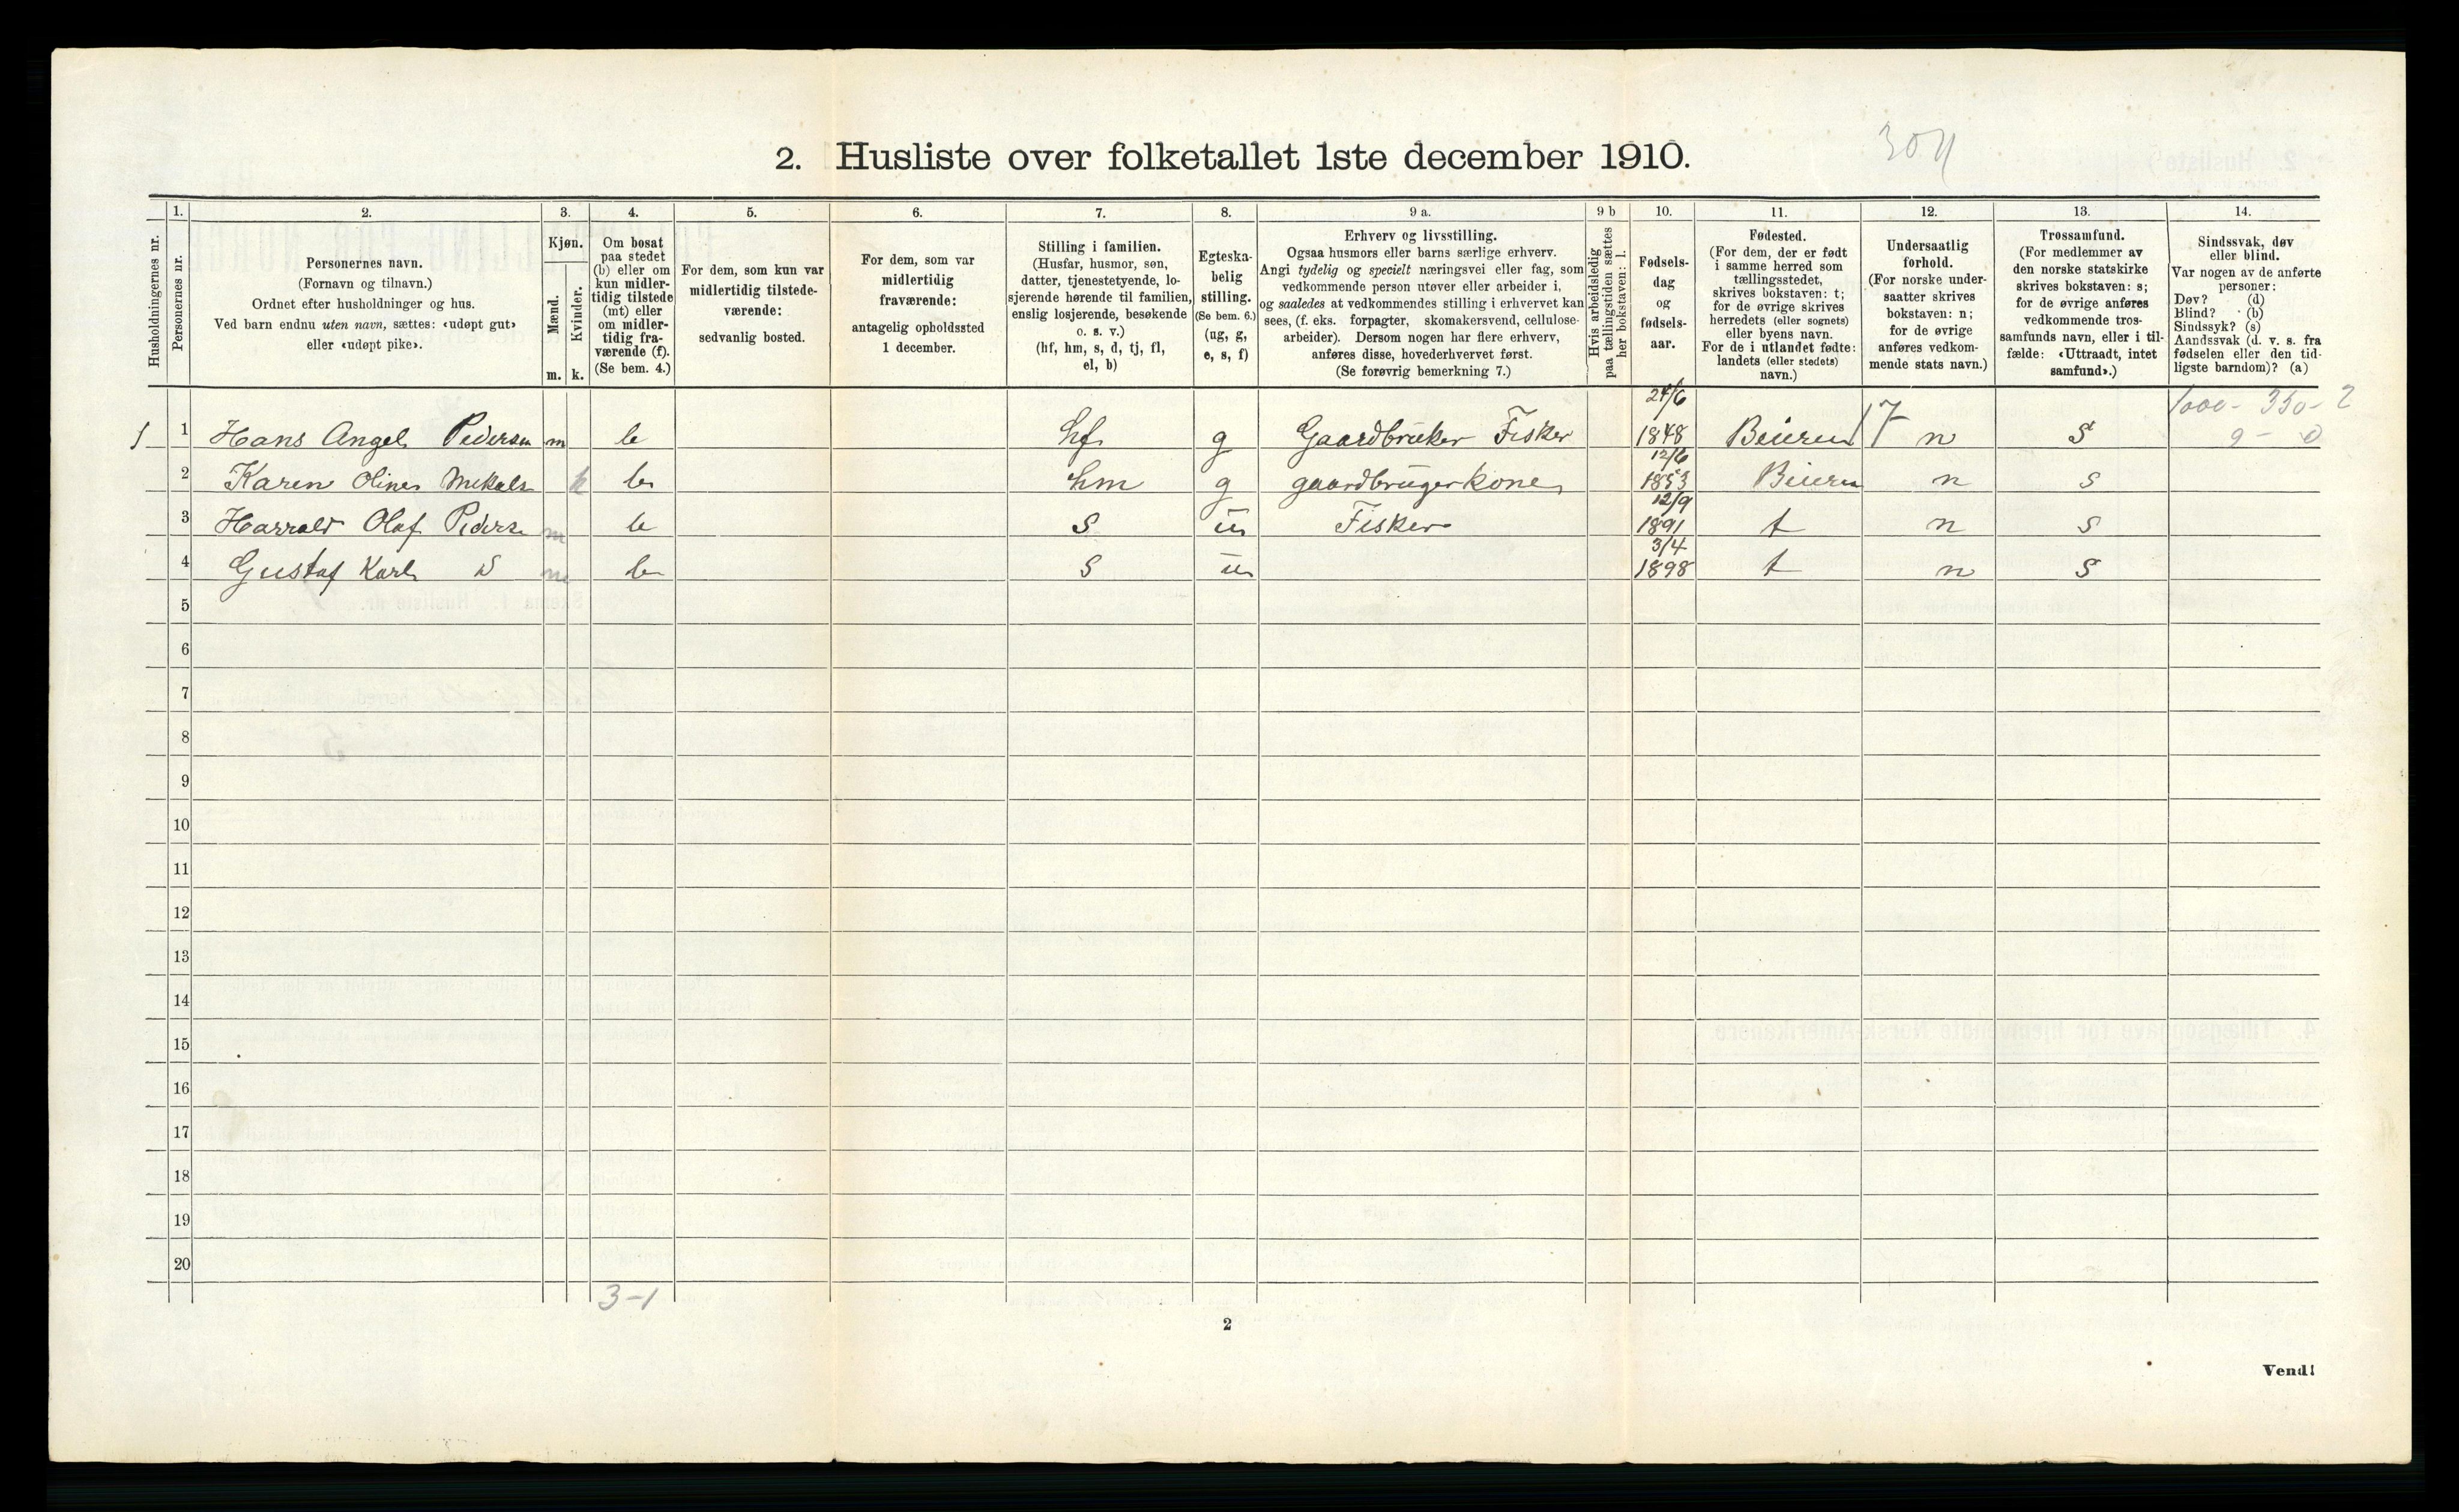 2. Husliste over folketallet 1ste december 1910.
Husholdningernes nr.
1.
Personernes nr.
2.
Personernes navn.
(Fornavn og tilnavn.)
Ordnet efter husholdninger og hus.
Ved barn endnu uten navn, sættes: «udøpt gut»
eller «udøpt pike».
3.
Kjøn.
Mænd.
Kvinder.
m. k.
4.
Om bosat
paa stedet
(b) eller om
kun midler-
tidig tilstede
(mt) eller
om midler-
tidig fra-
værende (f).
(Se bem. 4.)
5.
For dem, som kun var
midlertidig tilstede-
værende:
sedvanlig bosted.
6.
For dem, som var
midlertidig
fraværende:
antagelig opholdssted
1 december.
7.
Stilling i familien.
(Husfar, husmor, søn,
datter, tjenestetyende, lo-
sjerende hørende til familien,
enslig losjerende, besøkende
o. s. v.)
(hf, hm, s, d, tj, fl,
el, b)
8.
Egteska-
belig
stilling.
(Se bem. 6.)
(ug, g,
e, s, f)
9 a.
Erhverv og livsstilling.
Ogsaa husmors eller barns særlige erhverv.
Angi tydelig og specielt næringsvei eller fag, som
vedkommende person utøver eller arbeider i,
og saaledes at vedkommendes stilling i erhvervet kan
sees, (f. eks. forpagter, skomakersvend, cellulose-
arbeider). Dersom nogen har flere erhverv,
anføres disse, hovederhvervet først.
(Se forøvrig bemerkning 7.)
9 b
Hvis arbeidsledig
paa tællingstiden sættes
her bokstaven: l.
10.
Fødsels-
dag
og
fødsels-
aar.
11.
Fødested.
(For dem, der er født
i samme herred som
tællingsstedet,
skrives bokstaven: t;
for de øvrige skrives
herredets (eller sognets)
eller byens navn.
For de i utlandet fødte:
landets (eller stedets)
navn.)
12.
Undersaatlig
forhold.
(For norske under-
saatter skrives
bokstaven: n;
for de øvrige
anføres vedkom-
mende stats navn.)
13.
Trossamfund.
(For medlemmer av
den norske statskirke
skrives bokstaven: s;
for de øvrige anføres
vedkommende tros-
samfunds navn, eller i til-
fælde: «Uttraadt, intet
samfund».)
14.
Sindssvak, døv
eller blind.
Var nogen av de anførte
personer:
Døv? (d)
Blind? (b)
Sindssyk? (s)
Aandssvak (d. v. s. fra
fødselen eller den tid-
ligste barndom)? (a)
24/6 1000- 350- 2
1 1 Hans Angel Pedersen m b hf g Gaardbruker Fisker 1848 Beieren 17 n S 9- 0
12/6
2 Karen Oline Mikals k b hm g gaardbrugerkone 1853 Beieren n s
12/9
3 Harrald Olaf Peders m b S u Fisker 1891 t n s
3/4
4 Gustaf Karl S m b S u 1898 t n S
5
6
7
8
9
10
11
12
13
14
15
16
17
18
19
20
3-1
2
Vend!